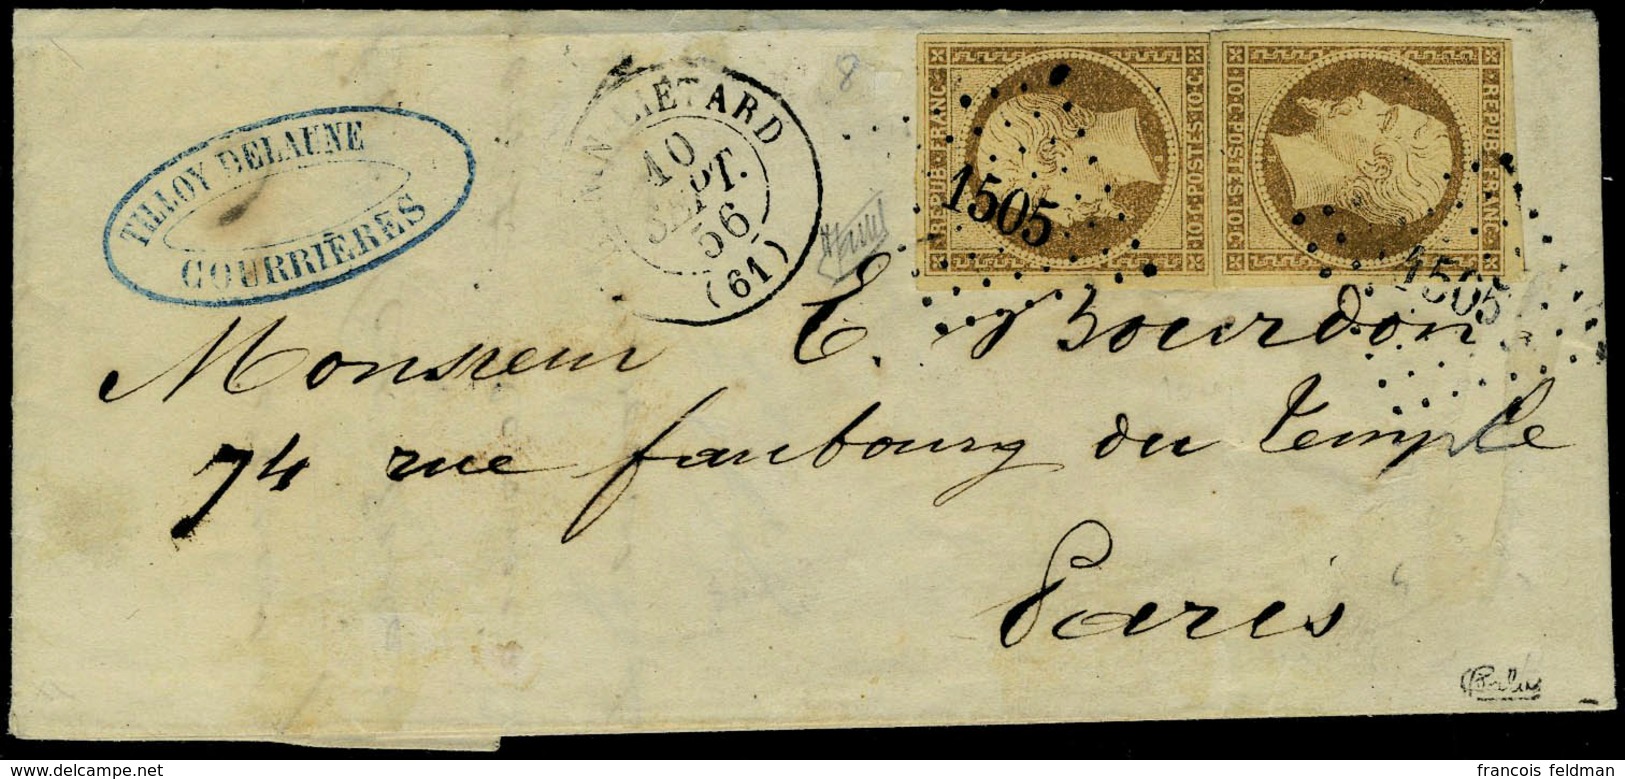 TILLOY DELAUNE
COURRIÈRES
LIÉTARD
10
SEPT.
56
(61)
8
REPUB. FRANC.
10.C.POSTES.10.C
10.C.POSTES.10.C
REPUB. FRANC.
1505
1505
Monsieur E. Bourdon
74 rue faubourg du Temple
Paris
www.delcampe.net
francois feldman